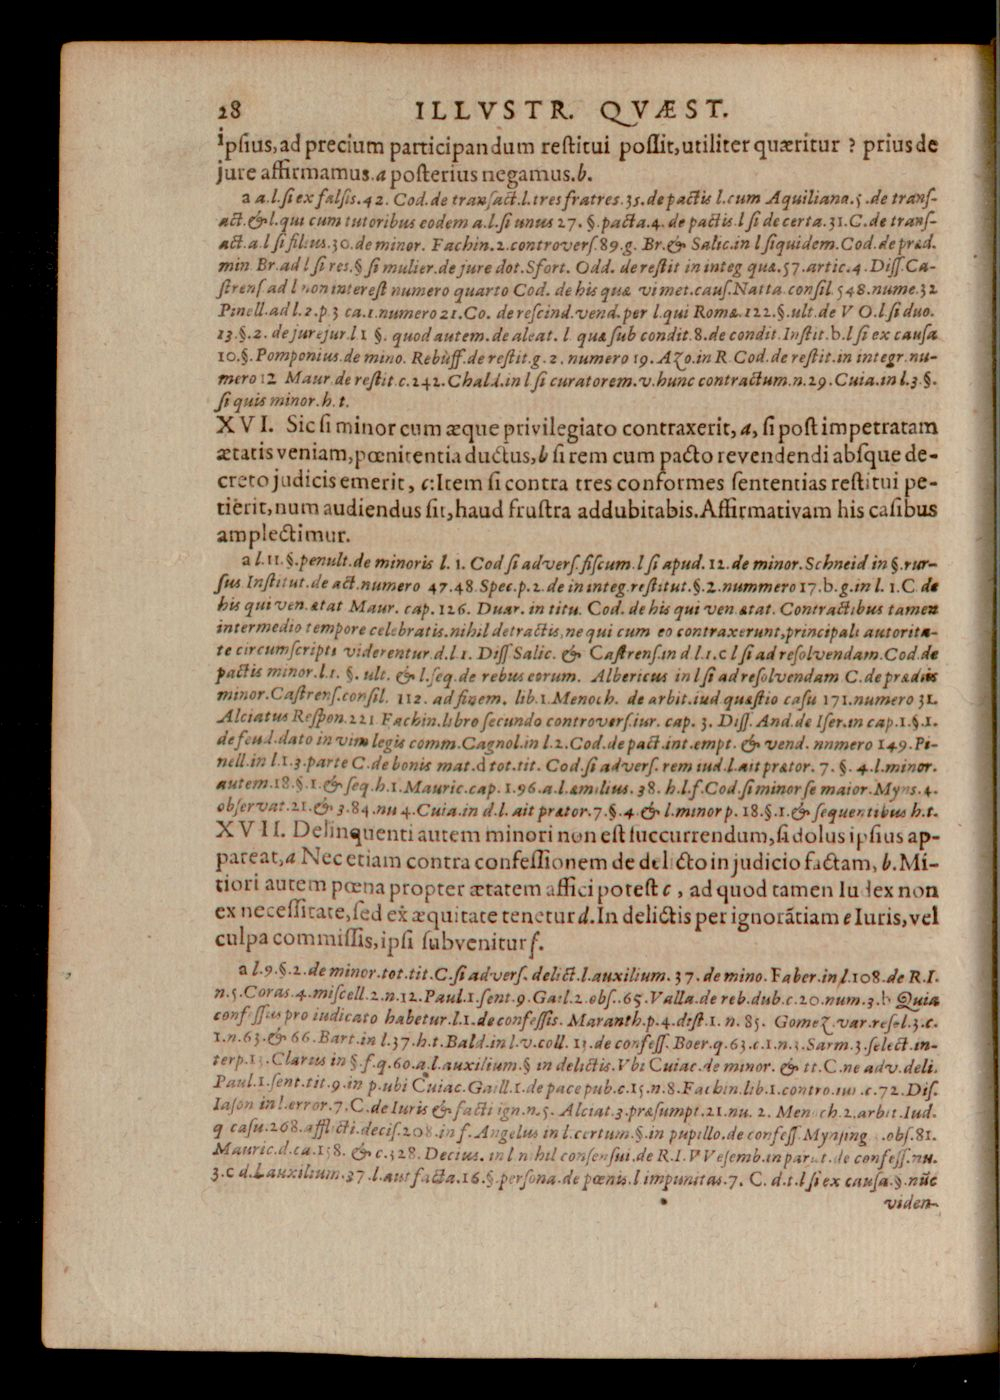 28 ILLVSTR. QVÆST.
ipſius, ad precium participandum reſtitui poſſit, utiliter quæritur ? prius de
jure affirmamus. a poſterius negamus. b.
a a. l. ſi ex falſis. 42. Cod. de tranſact. l. tres fratres. 35. de pactis l. cum Aquiliana. 5. de tranſ-
act. & l. qui cum tutoribus eodem a. l. ſi unus 27. §. pacta. 4. de pactis. l ſi de certa. 31. C. de tranſ-
act. a. l ſi filius. 30. de minor. Fachin. 2. controverſ. 89. g. Br. & Salic. in l ſiquidem. Cod. de præd.
min. Br. ad l ſi res. § ſi mulier. de jure dot. Sfort. Odd. de reſtit in integ quæ. 57. artic. 4. Diſſ. Ca-
ſtrenſ ad l non intereſt numero quarto Cod. de his quæ vi met. cauſ. Natta. conſil. 548. nume. 32
Pinell. ad l. 2. p. 3 ca. 1. numero 21. Co. de reſcind. vend. per l. qui Romæ. 122. §. ult. de V O. l ſi duo.
13. §. 2. de jurejur. l 1 §. quod autem. de aleat. l. quæ ſub condit. 8. de condit. Inſtit. b. l ſi ex cauſa
10. §. Pomponius. de mino. Rebuff. de reſtit. g. 2. numero 19. Azo. in R. Cod. de reſtit. in integr. nu-
mero 12 Maur. de reſtit. c. 242. Chald. in l ſi curatorem. v. hunc contractum. n. 29. Cuia. in l. 3. §.
ſi quis minor. h. t.
XVI. Sic ſi minor cum æque privilegiato contraxerit, a, ſi poſt impetratam
ætatis veniam, pœnitentia ductus, b ſi rem cum pacto revendendi abſque de-
creto judicis emerit, c: Item ſi contra tres conformes ſententias reſtitui pe-
tierit, num audiendus ſit, haud fruſtra addubitabis. Affirmativam his caſibus
amplectimur.
a l. 11. §. penult. de minoris l. 1. Cod ſi adverſ. fiſcum. l ſi apud. 12. de minor. Schneid in §. rur-
ſus Inſtitut. de act. numero 47. 48. Spec. p. 2. de in integ. reſtitut. §. 2. nummero 17. b. g. in l. 1. C. de
his qui ven. ætat Maur. cap. 126. Duar. in titu. Cod. de his qui ven. ætat. Contractibus tamen
intermedio tempore celebratis. nihil detractis, ne qui cum eo contraxerunt, principali autorita-
te circumſcripti viderentur. d. l 1. Diſſ Salic. & Caſtrenſ. in d l. 1. c l ſi ad reſolvendam. Cod. de
pactis minor. l. 1. §. ult. & l. ſeq. de rebus eorum. Albericus in l ſi ad reſolvendam C. de prædiis
minor. Caſtrenſ. conſil. 112. ad finem. lib. 1. Menoch. de arbit. iud quæſtio caſu 171. numero 31.
Alciatus Reſpon. 221 Fachin. libro ſecundo controverſ. iur. cap. 3. Diſſ. And. de Iſer. in cap. 1. §. 1.
de feud. dato in vim legis comm. Cagnol. in l. 2. Cod. de pact. int. empt. & vend. nnmero 149. Pi-
nell. in l. 1. 3. parte C. de bonis mat. d tot. tit. Cod. ſi adverſ. rem iud. l. ait prætor. 7. §. 4. l. minor.
autem. 18. §. 1. & ſeq. h. 1. Mauric. cap. 1. 96. a. l. æmilius. 38. h. l. f. Cod. ſi minor ſe maior. Myns. 4.
obſervat. 21. & 3. 84. nu 4. Cuia. in d. l. ait prætor. 7. §. 4 & l. minor p. 18. §. 1. & ſequentibus h. t.
XVII. Delinquenti autem minori non eſt ſuccurrendum, ſi dolus ipſius ap-
pareat, a Nec etiam contra confeſſionem de delicto in judicio factam, b. Mi-
tiori autem pœna propter ætatem affici poteſt c, ad quod tamen Iudex non
ex neceſſitate, ſed ex æquitate tenetur d. In delictis per ignorãtiam e Iuris, vel
culpa commiſſis, ipſi ſubvenitur f.
a l. 9. §. 2. de minor. tot. tit. C. ſi adverſ. delict. l. auxilium. 37. de mino. Faber. in l. 108. de R. I.
n. 5. Coras. 4. miſcell. 2. n. 12. Paul. 1. ſent. 9. Gail. 2. obſ. 65. Valla. de reb. dub. c. 20. num. 3. b Quia
confeſſus pro iudicato habetur. l. 1. de confeſſis. Maranth. p. 4. diſt. 1. n. 85. Gomez. var. reſol. 3. c.
1. n. 63. & 66. Bart. in l. 37. h. t. Bald. in l. v. coll. 13. de confeſſ. Boer. q. 63. c. 1. n. 3. Sarm. 3. ſelect. in-
terp. Clarus in §. f. q. 60. a. l. auxilium. § in delictis. Vbi Cuiac. de minor. & tt. C. ne adv. deli.
Paul. 1. ſent. tit. 9. in p. ubi Cuiac. Gaill. 1. de pace pub. c. 15. n. 8. Fachin. lib. 1. contro c. 72. Diſ.
Iaſon in l. error. 7. C. de Iuris & facti ign. n. 5. Alciat. 3. præſumpt. 21. nu. 2. Menoch. 2. arbit. Iud.
q caſu. 268. afflicti. deciſ. 208. in f. Angelus in l. certum. §. in pupillo. de confeſſ. Mynſing obſ. 81.
Mauric. d. ca. 158. & c. 328. Decius. in l nihil conſenſui. de R. I. VVeſemb. in parat. de confeſſ. nu.
3. c d. l. auxilium. 37. l. aut facta. 16. §. perſona. de pœnis. l impunitas. 7. C. d. t. l ſi ex cauſa. §. nũc
viden-